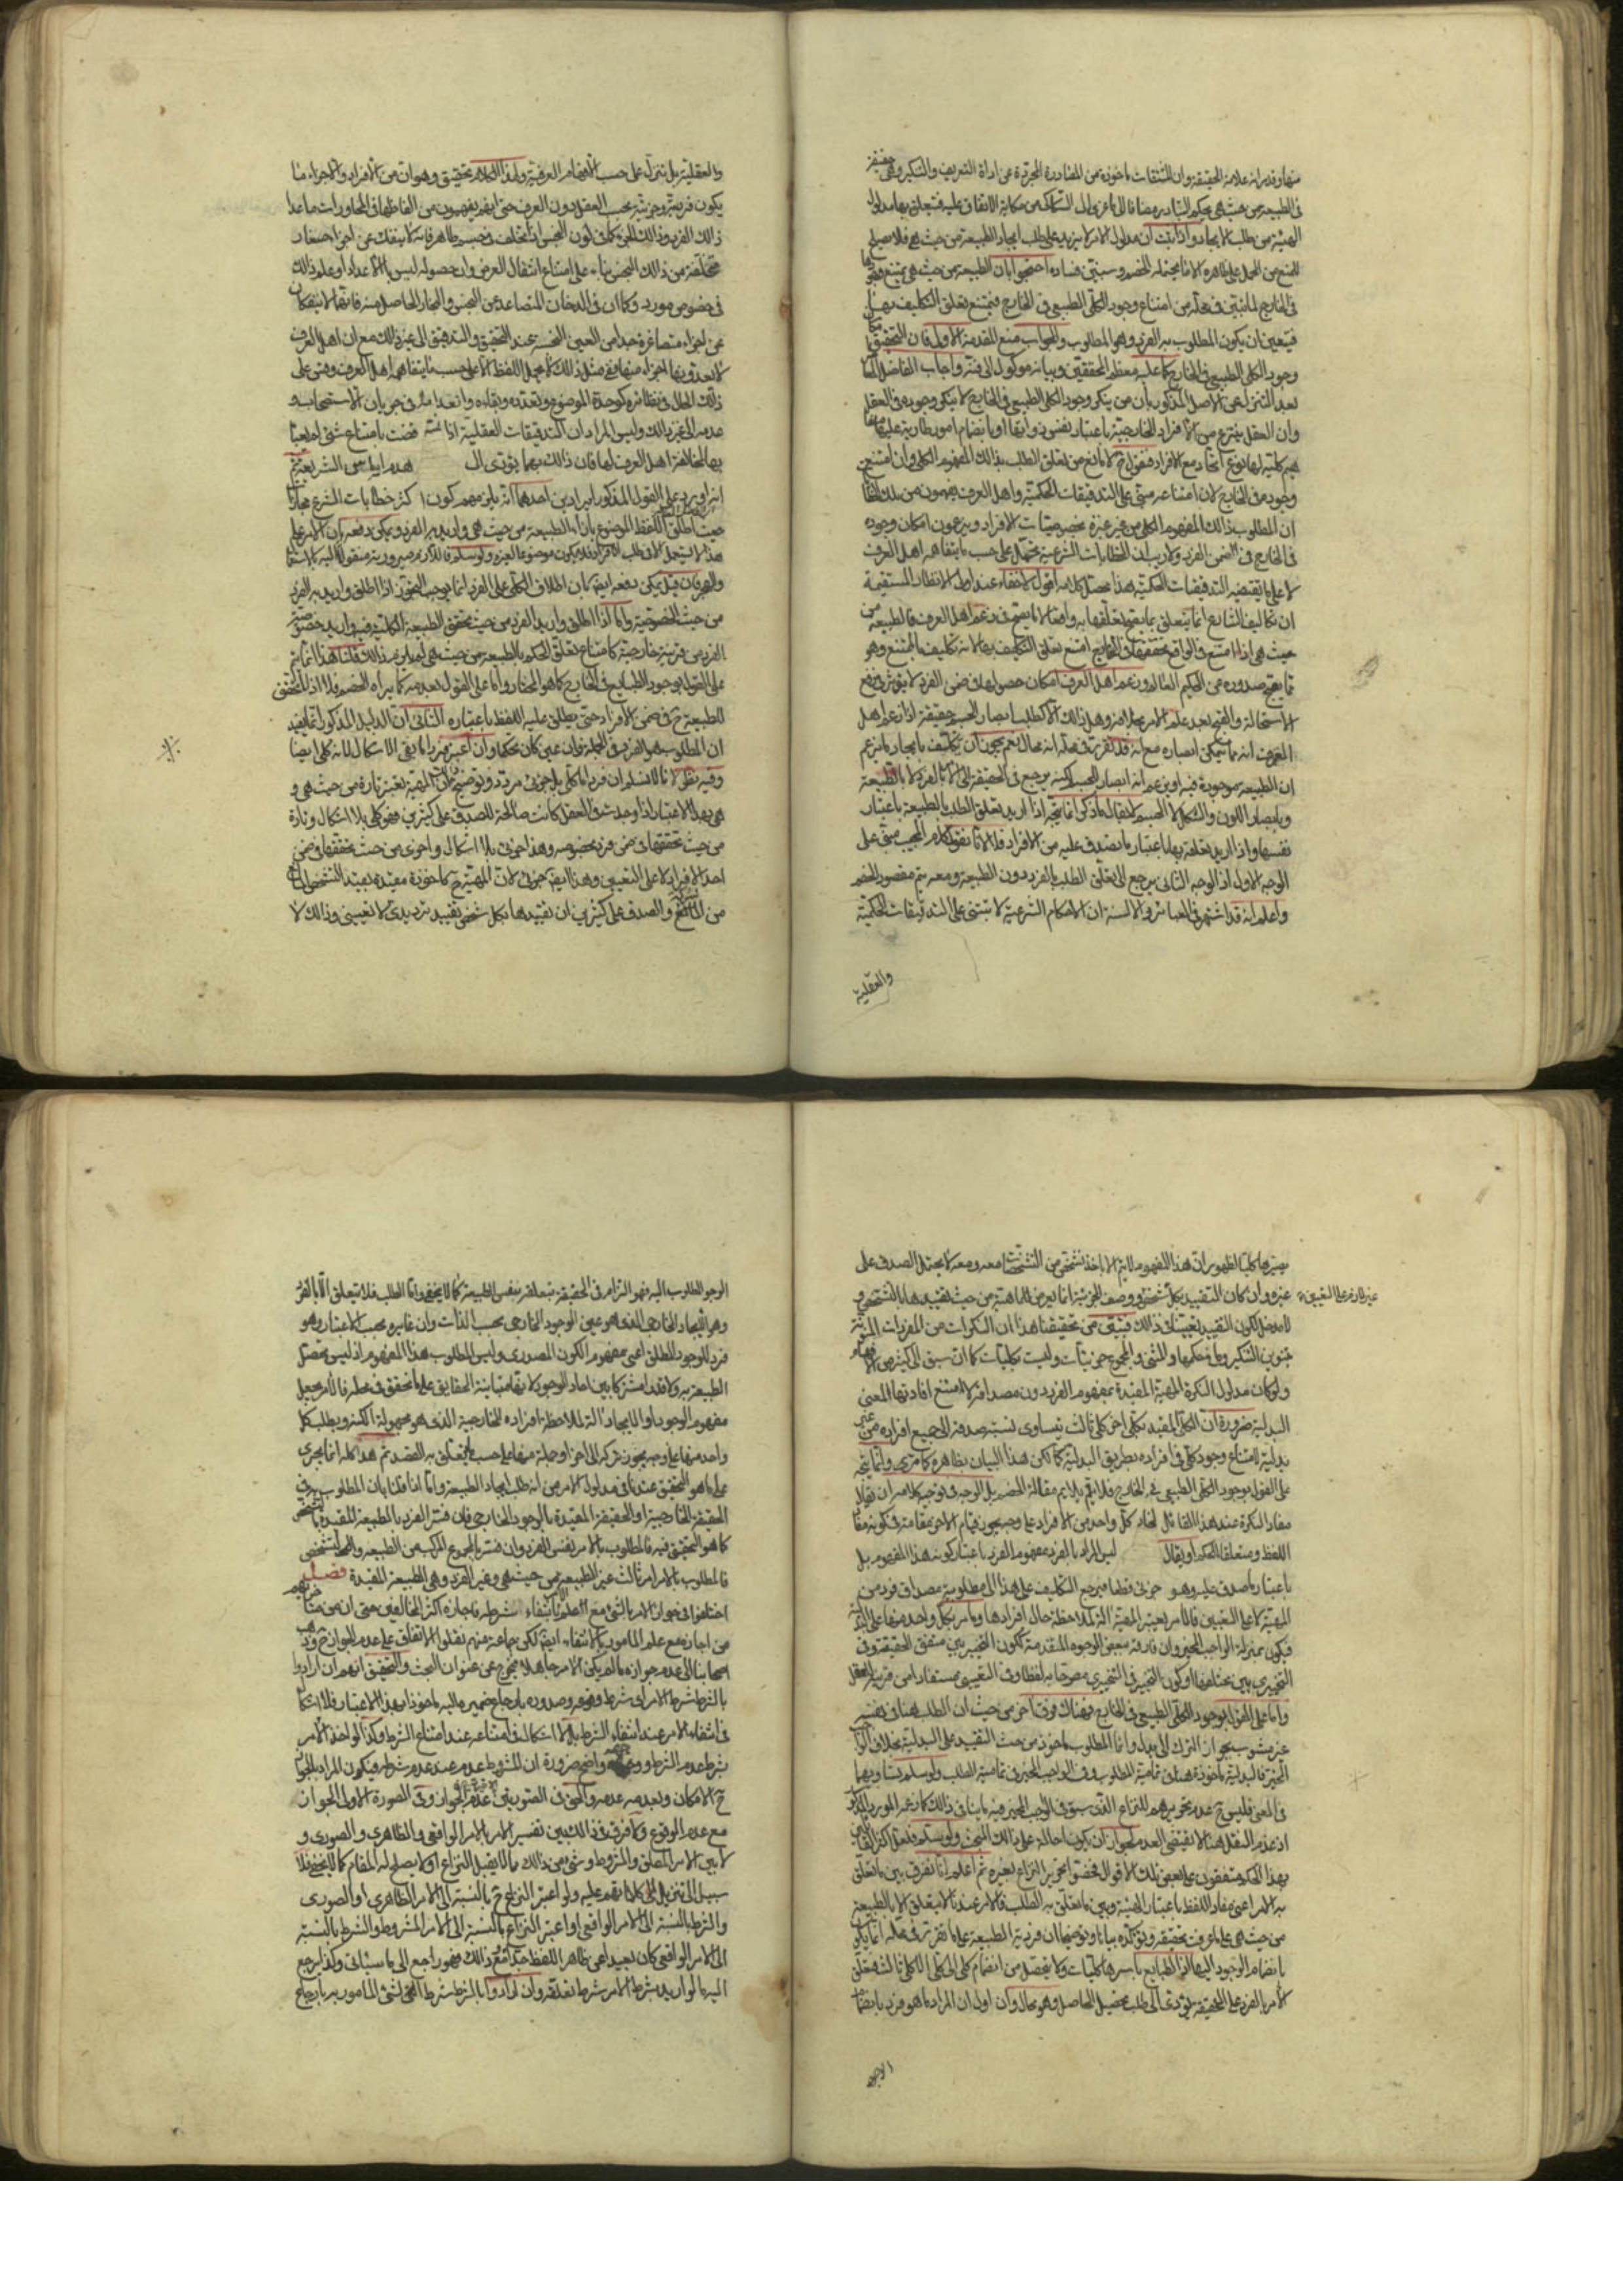 منها وقد مر انه علامة الحقيقة وان المشتقات ماخوذة من المصادر المجردة عن اداة التعريف والتنكير وهي حقيقة
في الطبيعة من حيث هي بحكم التبادر مضافا الى ما عزى الى السكاكى من حكاية الاتفاق عليه فتعلق بها مدلول
الهيئة من طلب الايجاد واذا ثبت ان مدلول الامر لا يزيد على طلب ايجاد الطبيعة من حيث هي فلا يصح
المنع من الحمل على ظاهره الا ما يحتمله الخصم وسيتبين فساده احتجوا بان الطبيعة من حيث هي يمتنع وجودها
في الخارج لما تبين في محله من امتناع وجود الكلي الطبيعي في الخارج فيمتنع تعلق التكليف بها
فيتعين ان يكون المطلوب به الفرد وهو المطلوب والجواب منع المقدمة الاولى فان التحقيق
وجود الكلي الطبيعي في الخارج كما عليه معظم المحققين وبيانه موكول الى فنه واجاب الفاضل
بعد التنزل عن الاصل المذكور بان من ينكر وجود الكلي الطبيعي في الخارج لا ينكر وجوده في العقل
وان العقل ينتزع من الافراد الخارجية باعتبار نفس ذواتها او بانضمام امور طارية عليها مفاهيم
كلية لها نوع اتحاد مع الافراد فنقول ح لا مانع من تعلق الطلب بذلك المفهوم الكلي وان امتنع
وجوده في الخارج لان امتناعه مبني على التدقيقات الحكمية واهل العرف يفهمون من تلك الخطابات
ان المطلوب بذلك المفهوم الكلي من غير عبرة بخصوصيات الافراد ويزعمون امكان وجوده
في الخارج في ضمن الفرد ولا ريب ان الخطابات الشرعية تحمل على حسب ما يتفاهمه اهل العرف
لا على ما يقتضيه التدقيقات الحكمية هذا محصل كلامه اقول لا خفاء عند اولي الانظار المستقيمة
ان تكاليف الشارع انما يتعلق بما يصح تعلقها به واقعا لا ما يصح في زعم اهل العرف فالطبيعة من
حيث هي اذا امتنع في الواقع تحققها في الخارج امتنع تعلق التكليف بها لانه تكليف بالممتنع وهو
مما يقبح صدوره عن الحكيم العالم وزعم اهل العرف امكان حصولها في ضمن الفرد لا يؤثر في رفع
الاستحالة والقبح بعد علم الامر بها وهل ذلك الا كطلب ابصار الجسم حقيقة اذا زعم اهل
العرف انه مما يمكن ابصاره مع انه قد تقرر في محله انه محال نعم يجوز ان يكلف بايجاد ما يزعم
ان الطبيعة موجودة فيه او يزعم انه ابصار الجسم لكنه يرجع في الحقيقة الى الامر بالفرد لا بالطبيعة
وبابصار اللون والشكل لا الجسم لا يقال ما ذكر انما يتجه اذا اريد تعلق الطلب بالطبيعة باعتبار
نفسها واذا اريد تعلقه بها باعتبار ما يصدق عليه من الافراد فلا لانا نقول كلام المجيب مبني على
الوجه الاول اذ الوجه الثاني يرجع الى تعلق الطلب بالفرد دون الطبيعة ومعه يتم مقصود الخصم
واعلم انه قد اشتهر في العبائر والالسنة ان الاحكام الشرعية لا تبتني على التدقيقات الحكمية
والعقلية
والعقلية بل تنزل على حسب الافهام العرفية ولهذا الكلام تحقيق وهو ان من الافراد والاجزاء ما
يكون فرديته وجزئيته بحسب العقل دون العرف حتى انهم يفهمون من الفاظها في المحاورات ما عدا
ذلك الفرد وذلك الجزء كما في لون النجس اذا تخلف في جسم طاهر فانه لا ينفك عن اجزاء صغار
متخلفة من ذلك النجس بناء على امتناع انتقال العرض وان حصوله ليس بالاعداد او علم ذلك
في خصوص مورد وكما ان في الدخان المتصاعد من النجس والبخار الحاصل منه فانهما لا ينفكان
عن اجزاء متصاغرة جدا من العين النجسة عند التحقيق والتدقيق الى غير ذلك مع ان اهل العرف
لا يعدونها اجزاء منها ففي مثل ذلك لا يحمل اللفظ الا على حسب ما يتفاهمه اهل العرف وقس على
ذلك الحال في نظائره كوحدة الموضوع وتعدده وبقائه وانعدامه في جريان الاستصحاب و
عدمه الى غير ذلك وليس المراد ان التدقيقات العقلية اذا تمت قضت بامتناع شئ لم يعبأ
بها لمخالفة اهل العرف لها فان ذلك ربما يؤدى الى هدم اساس الشريعة ثم
انه اورد على القول المذكور ايرادين احدهما انه يلزمهم كون اكثر خطابات الشرع مجازا
حيث اطلق اللفظ الموضوع بازاء الطبيعة من حيث هي واريد به الفرد ويمكن دفعه بان الامر على
من حيث الخصوصية واما اذا اطلق واريد الفرد من حيث تحقق الطبيعة الكلية فيه واريد خصوصية
الفرد من قرينة خارجية كامتناع تعلق الحكم بالطبيعة من حيث هي لم يلزم ذلك قلنا هذا انما يتم
على القول بوجود الطبايع في الخارج كما هو المختار واما على القول بعدمه كما يراه الخصم فلا اذ لا تحقق
للطبيعة ح في ضمن الافراد حتى يطلق عليه اللفظ باعتباره الثاني ان الدليل المذكور انما يفيد
ان المطلوب هو الفرد في الجملة فان عين كان تحكما وان اعتبر فردا ما بقى الاشكال لانه كلي ايضا
وفيه نظر لانا لا نسلم ان فردا ما كلي بل جزئي مردد وتوضيح ذلك ان الماهية تعتبر تارة من حيث هي و
هي بهذا الاعتبار اذا وجدت في العقل كانت صالحة للصدق على كثيرين فهو كلي بلا اشكال وتارة
من حيث تحققها في ضمن فرد بخصوصه وهذا جزئي بلا اشكال واخرى من حيث تحققها في ضمن
احد الافراد لا على التعيين وهذا ايضا جزئي لان الماهية ح ماخوذة مقيدة بقيد التشخص المانع
من الصدق على كثيرين لان تقييدها بكل شخص تقييد ترديدي لا تعييني وذلك لا
يصيرها كليا لظهور ان هذا المفهوم لا يتم الا باخذ تشخص من التشخصات معه ومعه لا يحتمل الصدق على
غيره وان كان التقييد بكل تشخص ووصف الجزئية انما يعرض الماهية من حيث تقييدها بالتشخص و
غير لازم على التعيين
لا مدخل لكون التقييد تعيينا في ذلك فتبين من تحقيقنا هذا ان النكرات من المفردات المنونة
بتنوين التنكير وما في حكمها والمثنى والمجموع جزئيات وليست بكليات كما سبق الى كثير من الافهام
ولو كان مدلول النكرة الماهية المقيدة بمفهوم الفرد دون مصداقه لامتنع افادتها المعنى
البدلية ضرورة ان الكلي المقيد بكلي اخر كلي ثالث يتساوى نسبة صدقه الى جميع افراده من غير
بدلية لامتناع وجود كلي في افراده بطريق البدلية لكن هذا البيان بظاهره كما ترى وانما يتجه
على القول بوجود الكلي الطبيعي في الخارج فلا يلايم مقالة الخصم بل الوجه في توجيه كلامه ان يقال
مفاد النكرة عند هذا القائل لحاظ كل واحد من الافراد على وجه يجوز قيام الاخر مقامه في كونه مفاد
اللفظ ومتعلقا للحكم او يقال ليس المراد بالفرد مفهوم الفرد باعتبار كونه هذا المفهوم بل
باعتبار ما صدق عليه وهو جزئي قطعا فيرجع التكليف على هذا الى مطلوبية مصداق فرد من
الماهية لا على التعيين فالامر يعتبر الماهية الة لملاحظة حال افرادها ويامر بكل واحد منها على البدلية
فيكون بمنزلة الواجب المخير وان فارقه ببعض الوجوه المتقدمة ككون التخيير بين متفق الحقيقة وفي
التخييري بين مختلفيها او كون التخيير في التخييري مصرحا به لفظا وفي التعييني مستفادا من قرينة العقل
واما على القول بوجود الكلي الطبيعي في الخارج فهناك فرق اخر من حيث ان الطلب هنا في نفسه
غير مشوب بجواز الترك الى بدل وانما المطلوب ماخوذ من حيث التقييد على البدلية بخلاف الواجب
المخير فالبدلية ماخوذة هنا في تمامية المطلوب وفي الواجب المخير في تمامية الطلب ولو سلم تساويهما
في المعنى فليس ح عدم تحريرهم للنزاع الذي سبق في الواجب المخير فيه ما ينافي ذلك كما زعمه المورد المذكور
اذ عدم النقل هنا لا يقتضي العدم لجواز ان يكون احالة على ذلك المبحث ولو سلم فلعل اكثر القائلين
بهذا الحكم متفقون على بعض تلك الاقوال فخصوا تحرير النزاع بغيره ثم اعلم انا نفرق بين ما تعلق
به الامر اعني مفاد اللفظ باعتبار الهيئة وبين ما تعلق به الطلب فالامر عندنا لا يتعلق الا بالطبيعة
من حيث هي على ما عرفت تحقيقه ونؤكده بيانا وتوضيحا ان فردية الطبيعة على ما تقرر في محله انما يكون
بانضمام الوجود اليها اذ الطبايع باسرها كليات ولا يتحصل من انضمام كلي الى كلي الا كلي ثالث فتعلق
الامر بالفرد على الحقيقة يؤدي الى طلب تحصيل الحاصل وهو محال وان اول ان المراد ما هو فرد بانضمام
الوجود المطلوب اليه فهو التزام في الحقيقة بتعلقه بنفس الطبيعة كما لا يخفى واما الطلب فلا يتعلق الا بالفرد
وهو الايجاد الخارجي الذى هو عين الوجود الخارجي بحسب الذات وان غايره بحسب الاعتبار وهو
فرد للوجود المطلق اعني مفهوم الكون المصدري وليس المطلوب هذا المفهوم اذ ليس تحصل
الطبيعة به ولا قدرا مشتركا بين احاد الوجود لانها متباينة الحقايق على ما تحقق في محله فالامر يجعل
مفهوم الوجود او الايجاد الة لملاحظة افراده الخارجية الذى هو مجهولة الكنه ويطلب كل
واحد منها على وجه يجوز تركه الى اخر او جملة منها على حسب ما يتعلق به القصد ثم هذا كله انما يجرى
على ما هو التحقيق عندنا في مدلول الامر من انه طلب ايجاد الطبيعة واما اذا قلنا بان المطلوب به
الحقيقة الخارجية او الحقيقة المقيدة بالوجود الخارجي فان فسر الفرد بالطبيعة المقيدة بالتشخص
كما هو التحقيق فيه فالمطلوب بالامر نفس الفرد وان فسر بالمجموع المركب من الطبيعة والتشخص
فالمطلوب بالامر امر ثالث غير الطبيعة من حيث هي وغير الفرد وهي الطبيعة المقيدة فصل
اختلفوا في جواز الامر بالشئ مع العلم بانتفاء شرطه فاجازه اكثر المخالفين حتى ان من متاخريهم
من اجازه مع علم المامور بالانتفاء ايضا لكن جماعة منهم نقلوا الاتفاق على عدم الجواز ح وذهب
اصحابنا الى عدم جوازه ما لم يكن الامر جاهلا فيخرج عن عنوان البحث والتحقيق انهم ان ارادوا
بالشرط شرط الامر اي شرط وقوعه وصدوره بارجاع ضميره اليه ماخوذا بهذا الاعتبار فلا اشكال
في انتفاء الامر عند انتفاء الشرط بل لا اشكال في امتناعه عند امتناع الشرط وكذا لو اخذ الامر
بشرط عدم الشرط ووجهه واضح ضرورة ان المشروط عدم عند عدم شرطه فيكون المراد بالجواز
ح الامكان وبعدمه عدمه والحق في الصورتين عدم الجواز وفي الصورة الاولى الجواز
مع عدم الوقوع ولا فرق في ذلك بين تفسير الامر بالامر الواقعي والظاهري والصورى و
لا بين الامر المطلق والمشروط وشئ من ذلك مما لا يقبل النزاع او لا يصلح له المقام كما لا يخفى فلا
سبيل الى تنزيل كلامهم عليه ولو اعتبر النزاع ح بالنسبة الى الامر الظاهرى او الصورى
والشرط بالنسبة الى الامر الواقعي او اعتبر النزاع بالنسبة الى الامر المشروط والشرط بالنسبة
الى الامر الواقعي كان بعيدا عن ظاهر اللفظ جدا ومع ذلك فهو راجع الى ما سياتي وكذا يرجع
اليه ما لو اريد بشرط الامر شرط تعلقه وان ارادوا بالشرط شرط الشئ المامور به بارجاع
الوجو